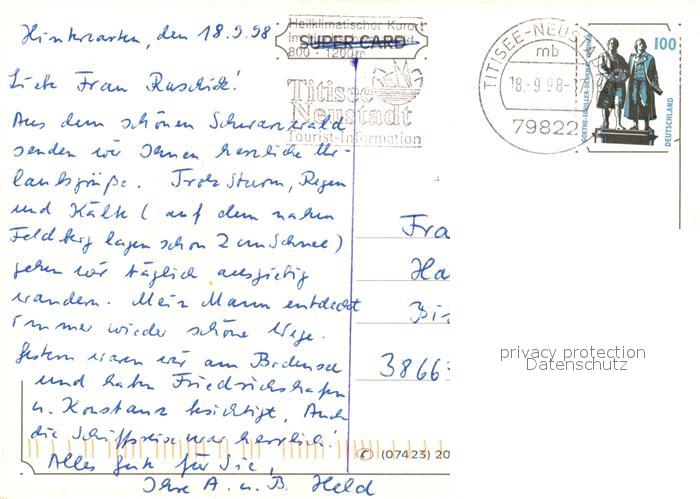 Hinterzarten, den 18.9.98
Liebe Frau Raschick!
Aus dem schönen Schwarzwald
senden wir Ihnen herzliche Ur-
laubsgrüße. Trotz Sturm, Regen
und Kälte (auf dem nahen
Feldberg lagen schon 2 cm Schnee)
gehen wir täglich ausgiebig
wandern. Mein Mann entdeckt
immer wieder schöne Wege.
Gestern waren wir am Bodensee
und haben Friedrichshafen
u. Konstanz besichtigt. Auch
die Schiffsreise war herrlich!
Alles Gute für Sie,
Ihre A. u. B. Held
Heilklimatischer Kurort
800 - 1200m
SUPER CARD
Titisee
Neustadt
Tourist-Information
TITISEE-NEUS
mb
18.-9.98-
79822
100
DEUTSCHLAND
GOETHE-SCHILLER-DENKMAL
Fra
Ha
Bis
3866
(07423) 20
privacy protection
Datenschutz